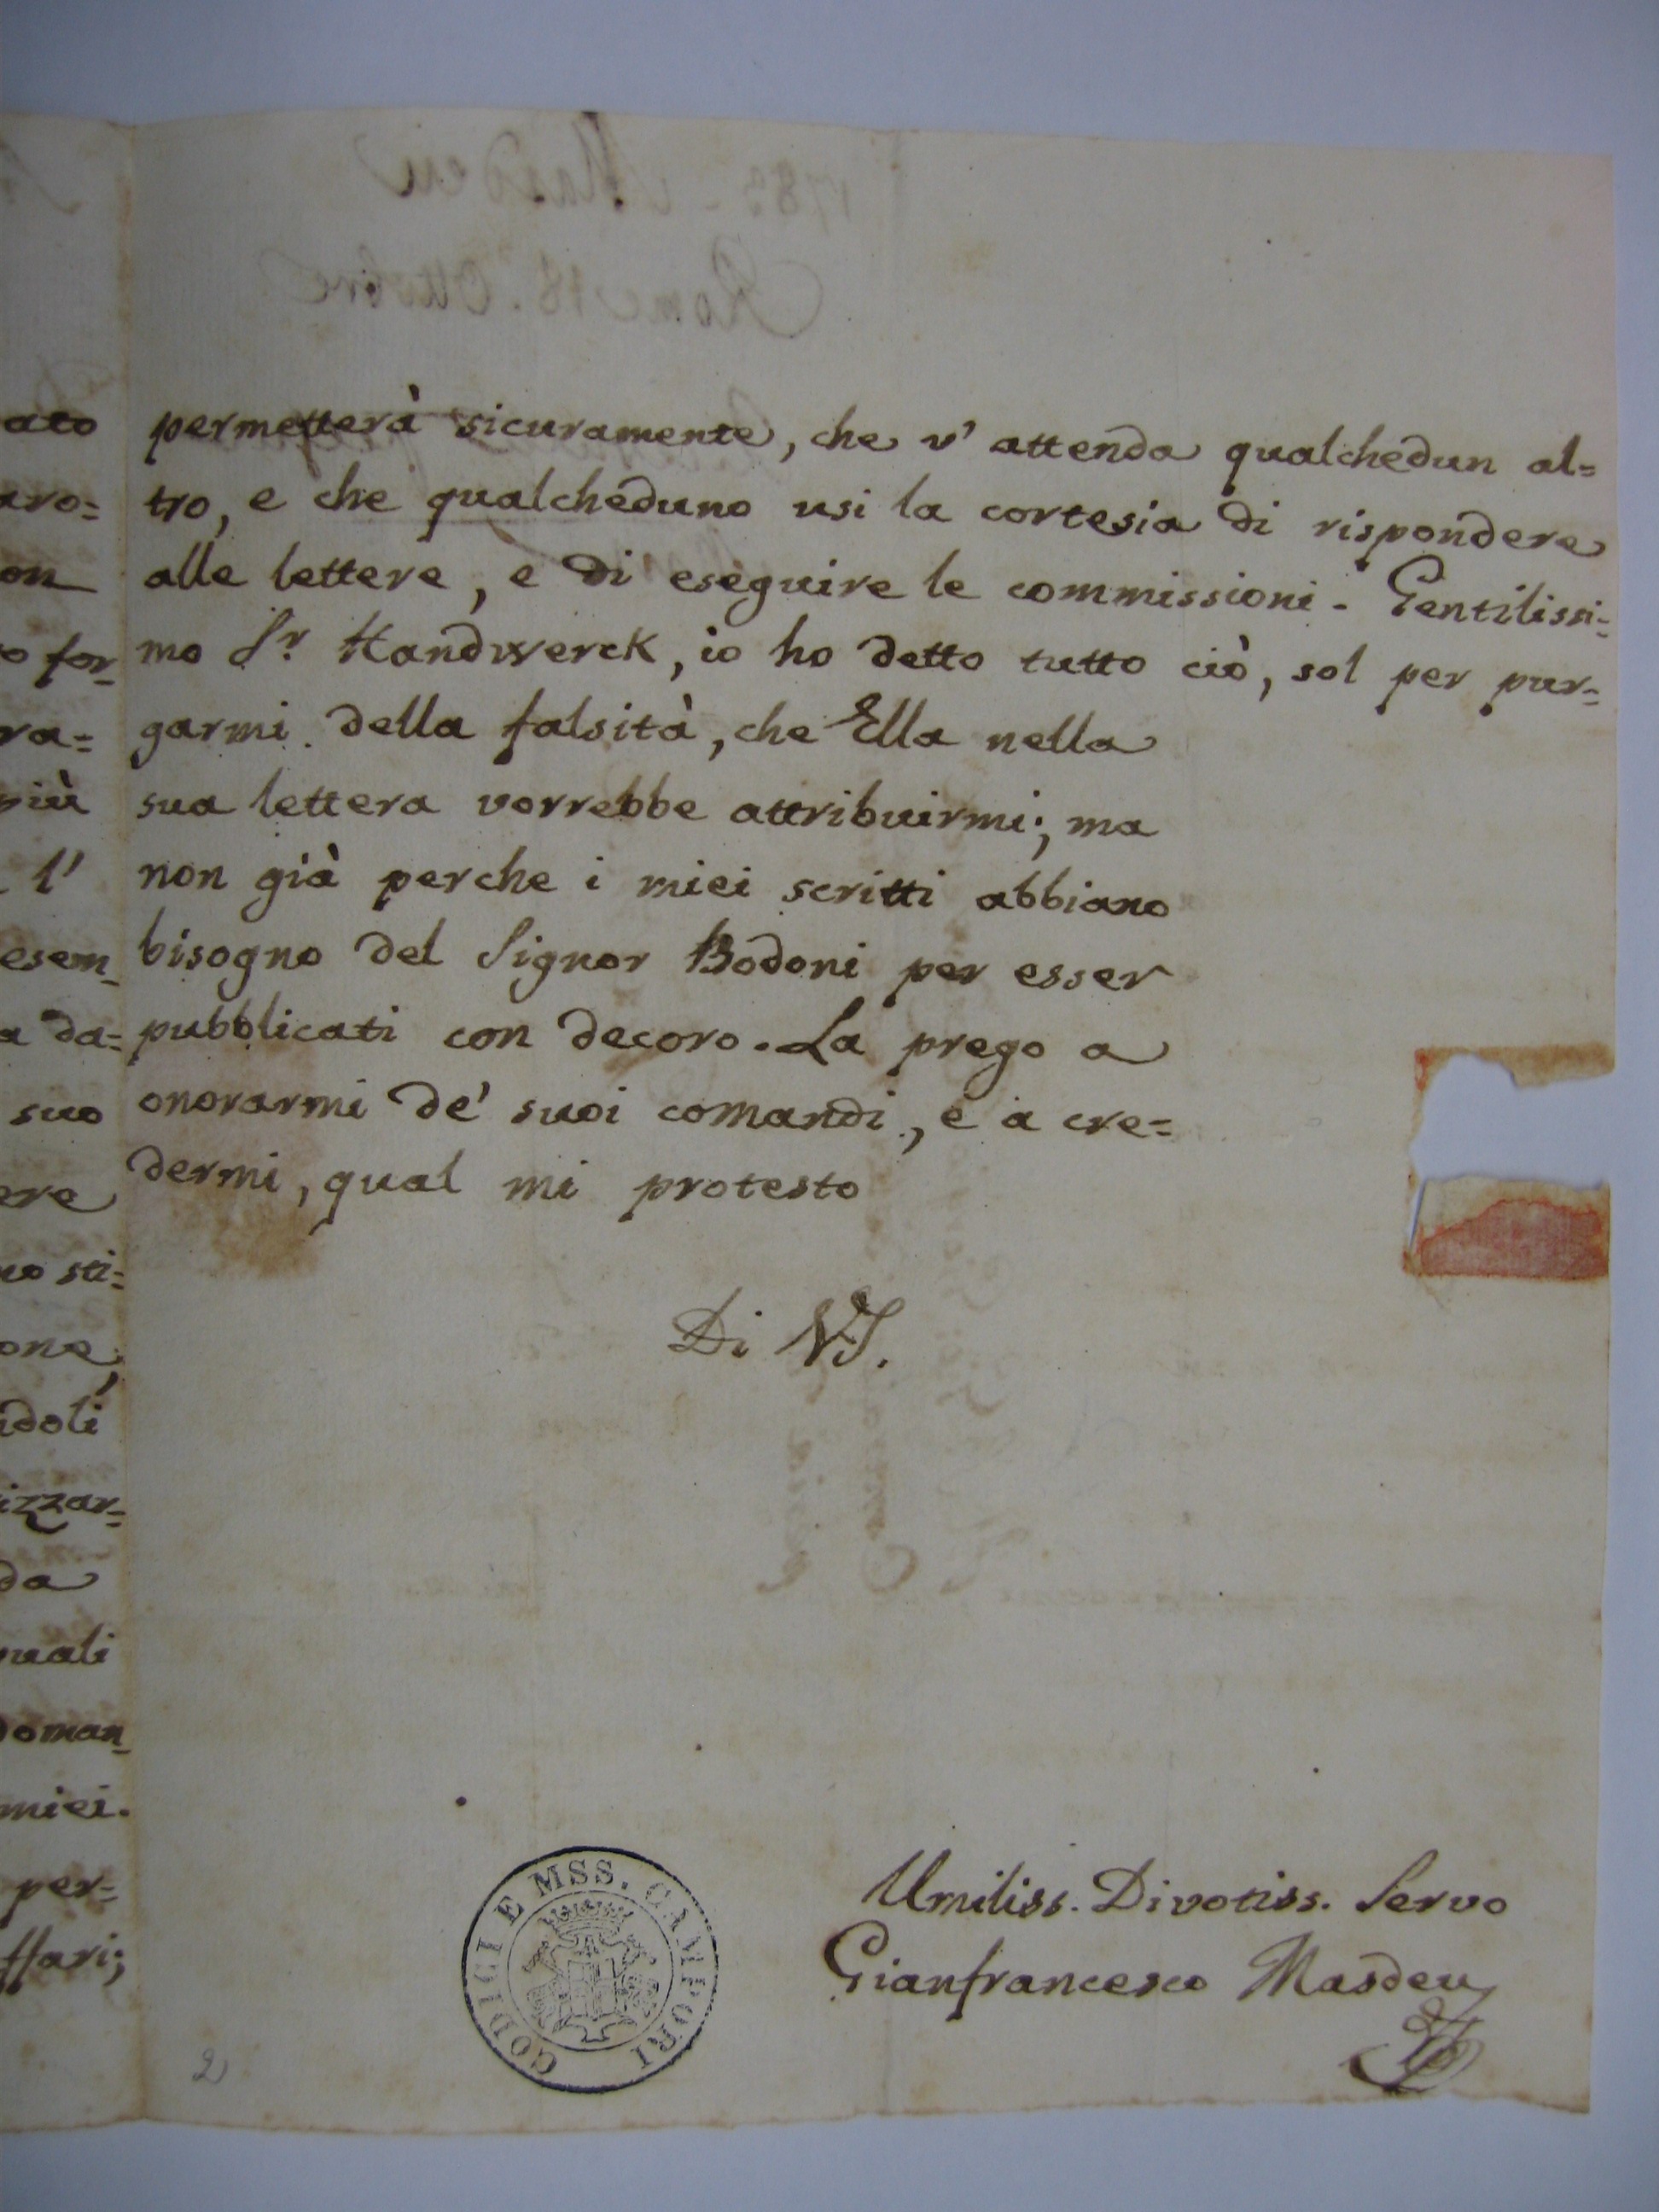 permetterà sicuramente, che v' attenda qualchedun al=
tro, e che qualcheduno usi la cortesia di rispondere
alle lettere, e di eseguire le commissioni. Gentilissi=
mo Sr. Handwerck, io ho detto tutto ciò, sol per pur=
garmi della falsità, che Ella nella
sua lettera vorrebbe attribuirmi; ma
non già perche i miei scritti abbiano
bisogno del Signor Bodoni per esser
pubblicati con decoro. La prego a
onorarmi de' suoi comandi, e a cre=
dermi, qual mi protesto
Di VS.
Umiliss. Divotiss. Servo
Gianfrancesco Masdeu
CODICI E MSS. CAMPORI
2
ato
aro=
on
o for=
ra=
più
l'
esem=
a da=
suo
ere
uo sti=
one,
doli
izzar=
da
uali
doman=
miei.
per=
ffari;
1783. Masdeu
Roma 18. Ottobre